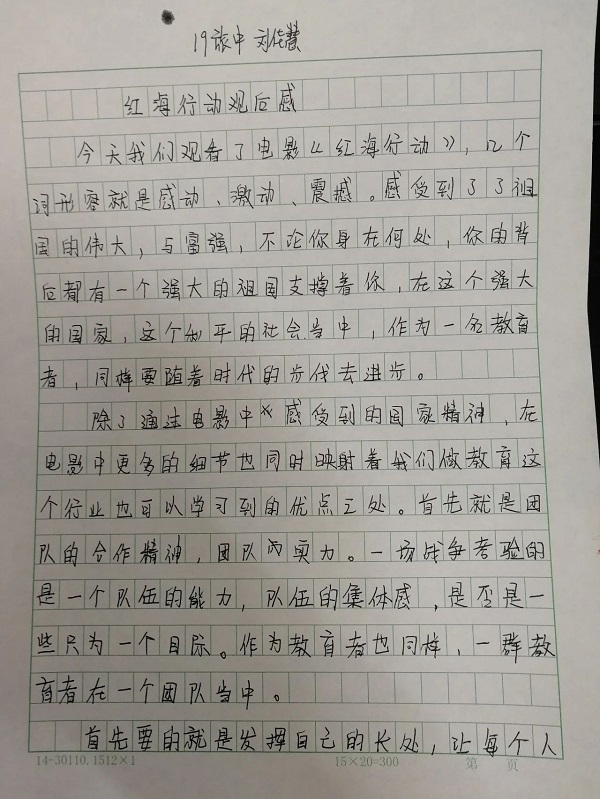 19旅中 刘佳慧
红海行动观后感
今天我们观看了电影《红海行动》,几个
词形容就是感动、激动、震撼。感受到了了祖
国的伟大,与富强,不论你身在何处,你的背
后都有一个强大的祖国支撑着你,在这个强大
的国家,这个和平的社会当中,作为一名教育
者,同样要随着时代的步伐去进步。
除了通过电影中感受到的国家精神,在
电影中更多的细节也同时映射着我们做教育这
个行业也可以学习到的优点之处。首先就是团
队的合作精神,团队的实力。一场战争考验的
是一个队伍的能力,队伍的集体感,是否是一
些只为一个目际。作为教育者也同样,一群教
育者在一个团队当中。
首先要的就是发挥自己的长处,让每个人
14-30110.1512×1
15×20=300
第 页